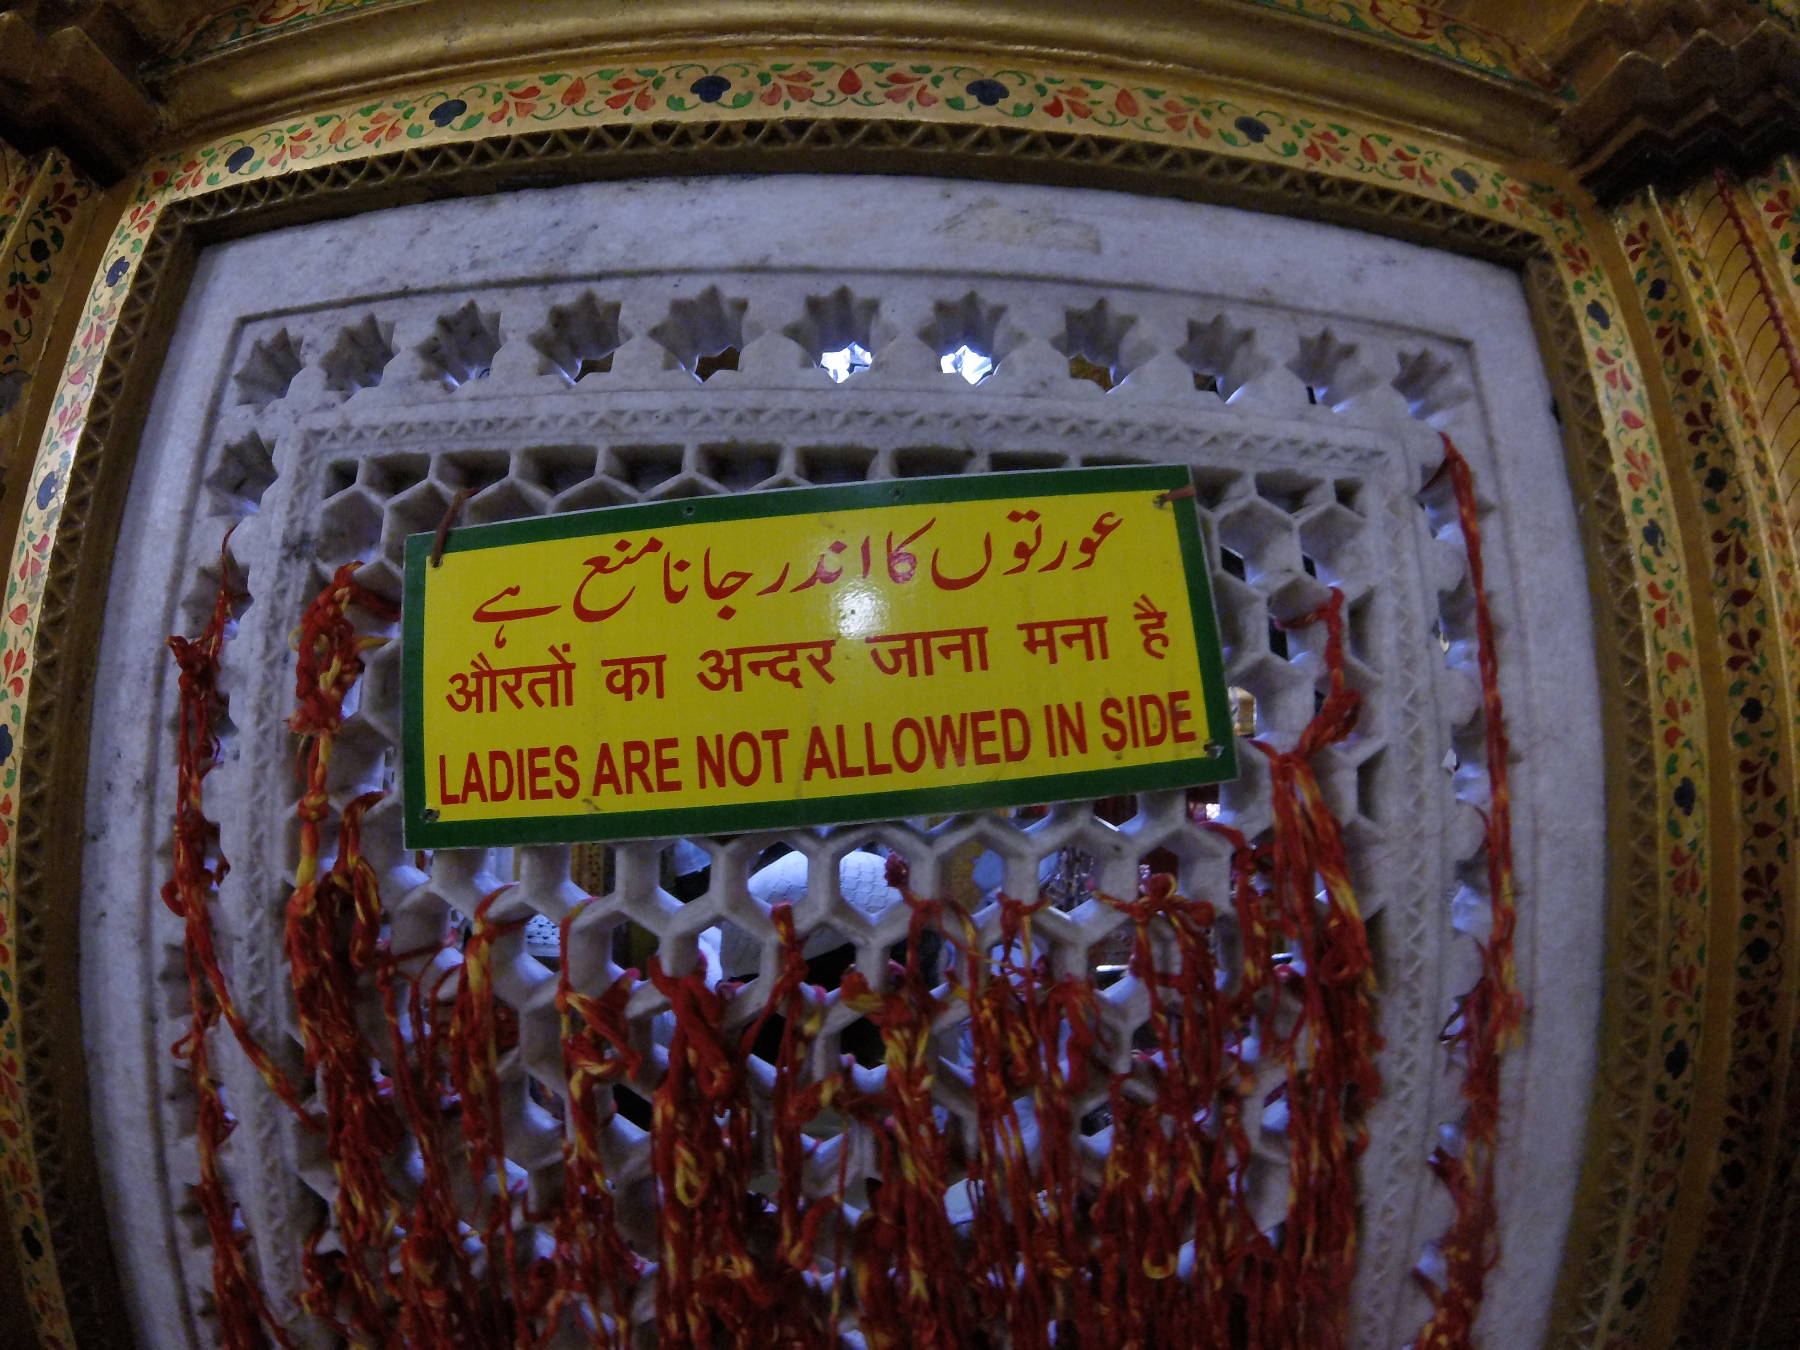 عورتوں کا اندر جانا منع ہے
औरतों का अन्दर जाना मना है
LADIES ARE NOT ALLOWED IN SIDE